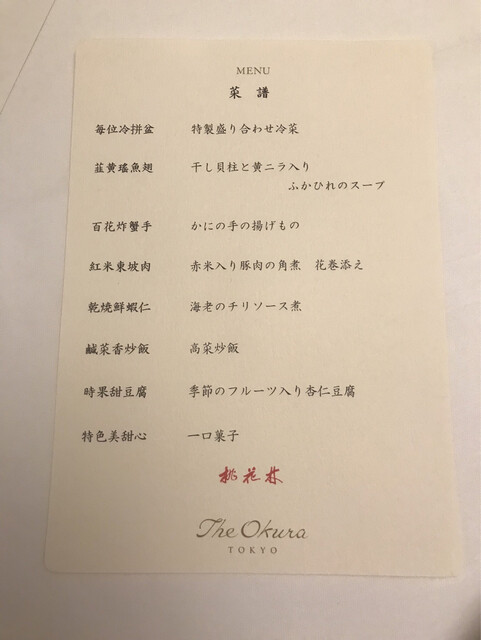 MENU
菜 譜
每位冷拼盆 特製盛り合わせ冷菜
韮黄瑤魚翅 干し貝柱と黄ニラ入り
ふかひれのスープ
百花炸蟹手 かにの手の揚げもの
紅米東坡肉 赤米入り豚肉の角煮 花巻添え
乾焼鮮蝦仁 海老のチリソース煮
鹹菜香炒飯 高菜炒飯
時果甜豆腐 季節のフルーツ入り杏仁豆腐
特色美甜心 一口菓子
桃花林
The Okura
TOKYO